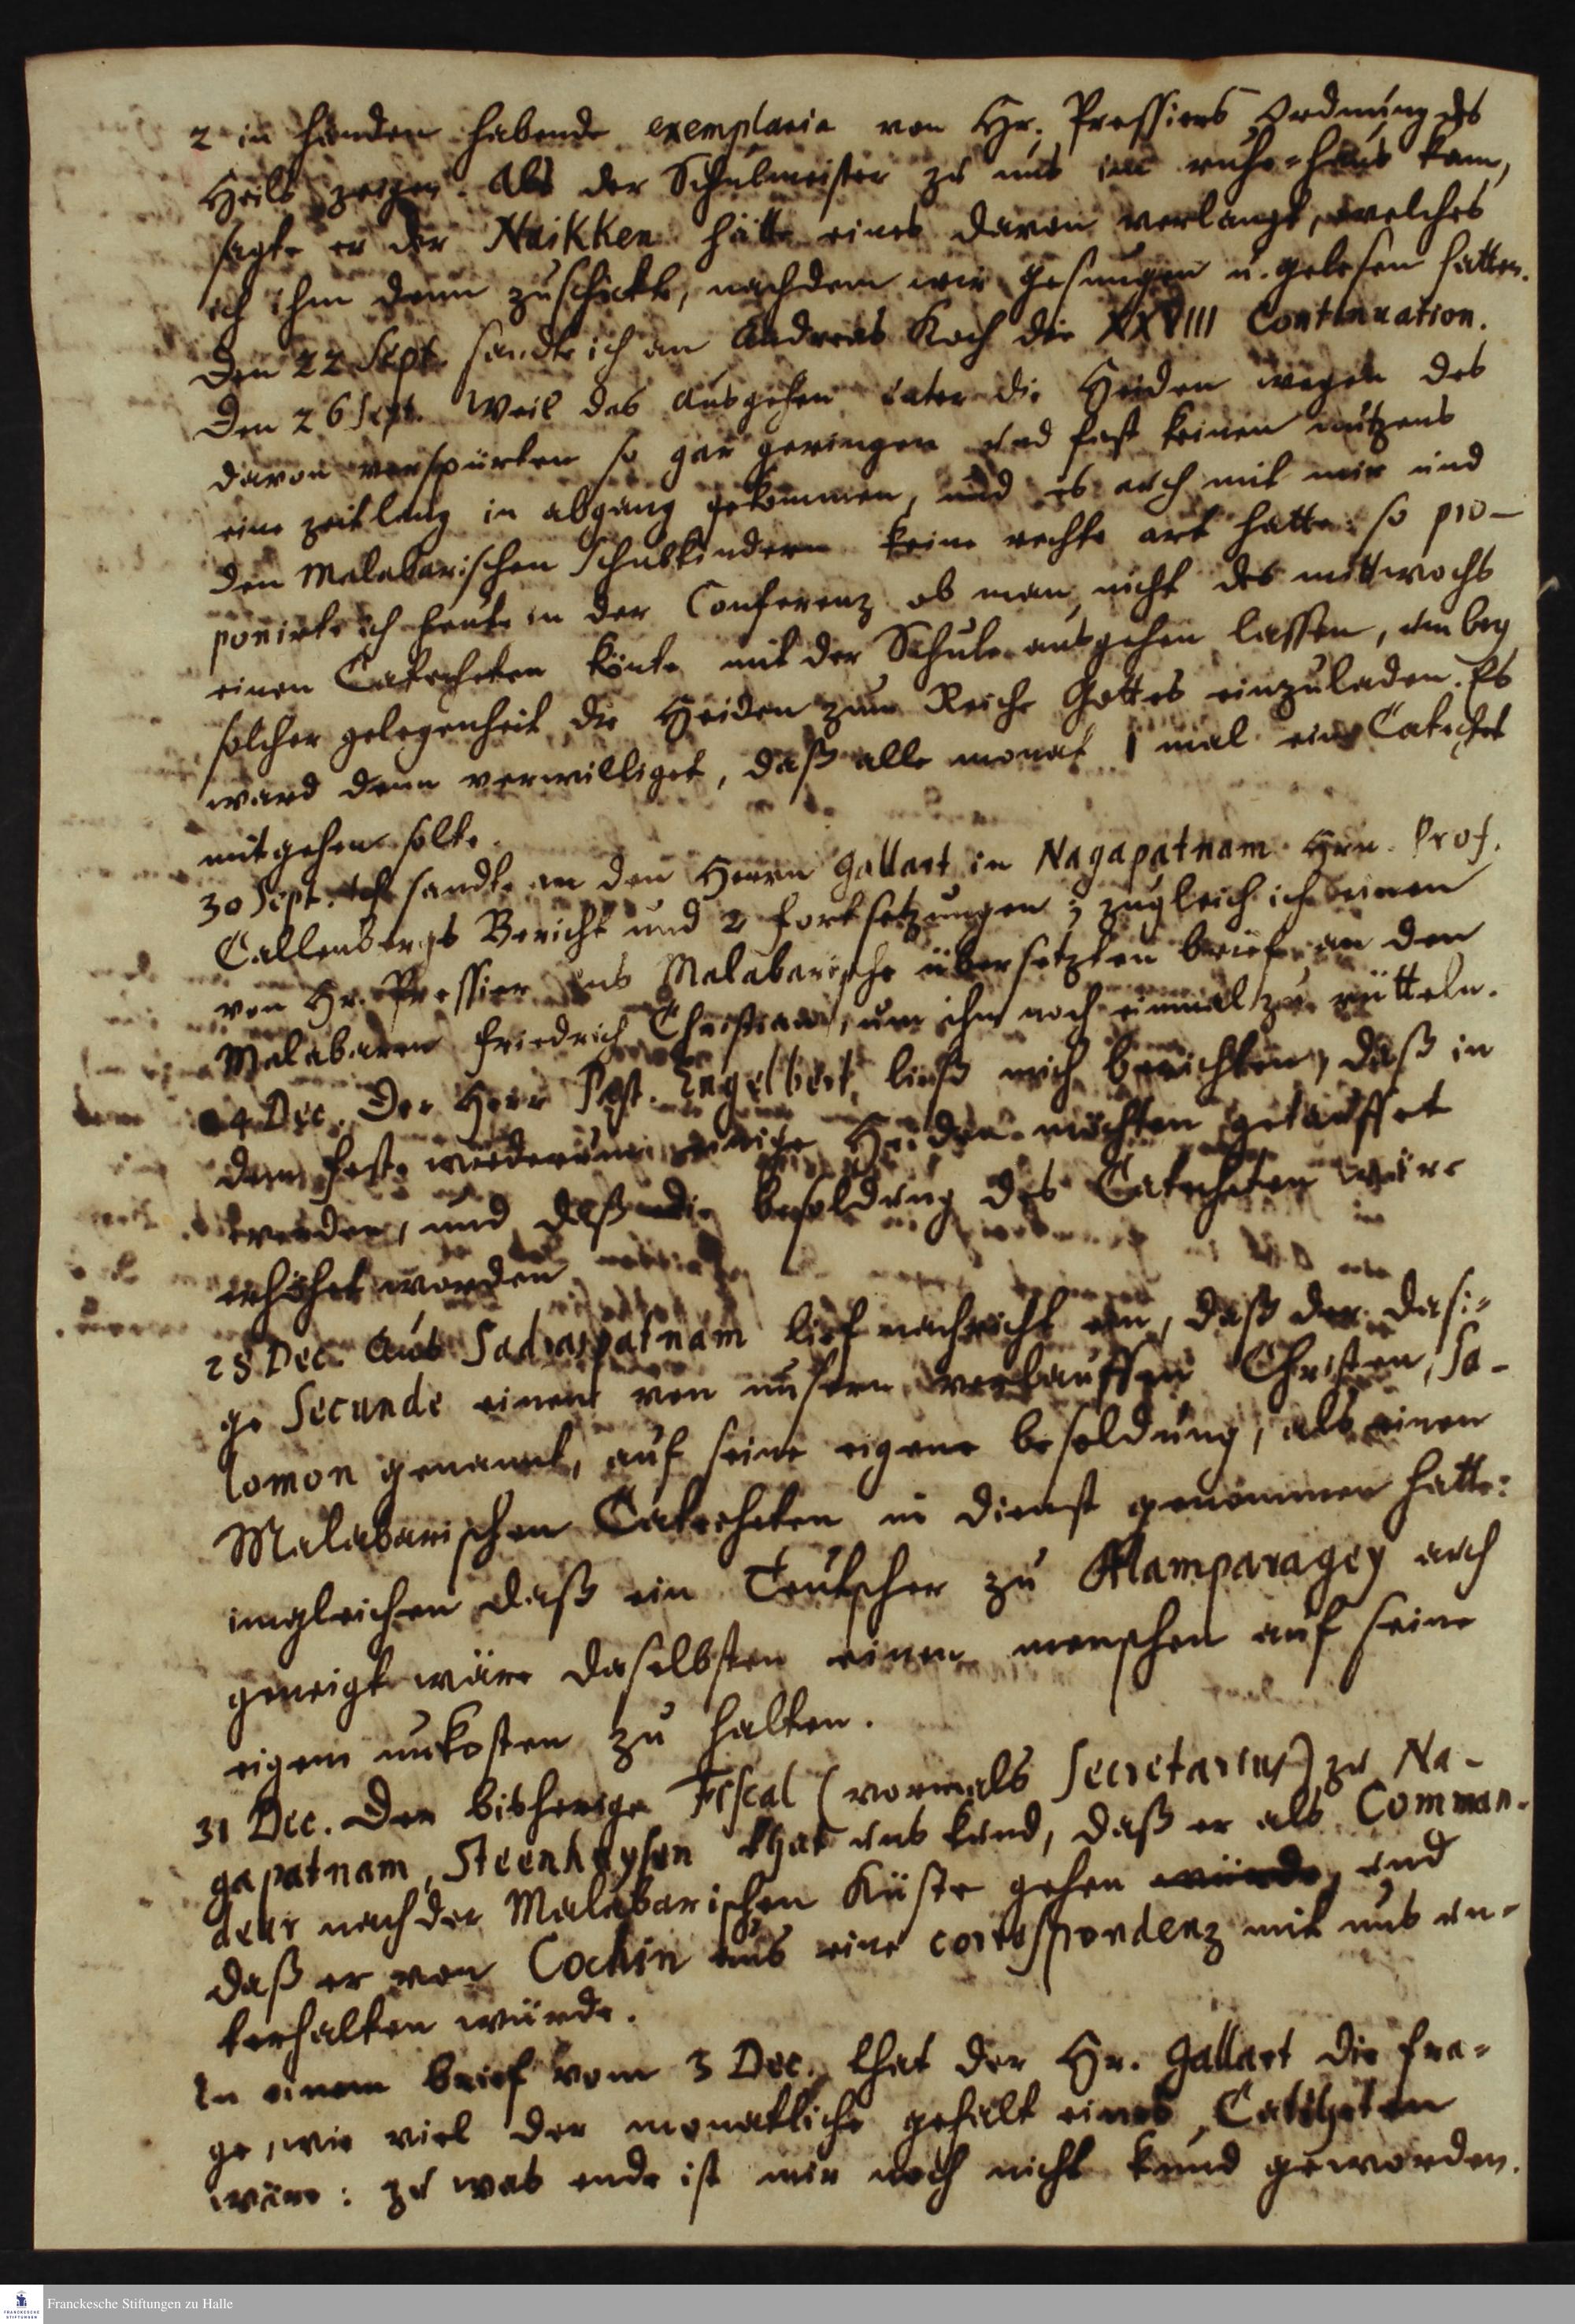 2 in händen habende exemplaria von Hr. Pressiers Ordnung des
Heils zeigen. Als der Schulmeister zu uns ins ruhe-haus kam,
sagte er der Naikken hätte eines davon verlangt, welches
ich ihm denn zuschickte, nachdem wir gesungen u. gelesen hatten.
Den 22 Sept. sandte ich an Andreas Koch die XXVIII Continuation.
Den 26 Sept. Weil das Ausgehen unter die Heiden wegen des
davon verspürten so gar geringen und fast keinen nutzens
eine zeitlang in abgang gekommen, und es auch mit mir und
den Malabarischen Schulkindern keine rechte art hatte: so pro-
ponirte ich heute in der Conferenz ob man nicht des mittwochs
einen Catecheten könte mit der Schule ausgehen lassen, um bey
solcher gelegenheit die Heiden zum Reiche Gottes einzuladen. Es
ward denn verwilliget, daß alle monat 1 mal ein Catechet
mitgehen solte.
30 Sept. Ich sandte an den Herrn Gallart in Nagapatnam Hrn. Prof.
Callenbergs Bericht und 2 fortsetzungen; zugleich ich einen
von Hr. Pressier ins Malabarische übersetzten brief an den
Malabaren Friedrich Christian, um ihn noch einmal zu rütteln.
4 Dec. Der Herr Past. Engelbert ließ mich berichten, daß in
dem feste wiederum einige Heiden möchten getauffet
werden, und daß die besoldung des Catecheten wäre
erhöhet worden
28 Dec. Aus Sadraspatnam lief nachricht ein, daß der dasi-
ge Secunde einen von unsern verlauffen Christen, Sa-
lomon genannt, auf seine eigene besoldung, als einen
Malabarischen Catecheten in dienst genommen hatte:
imgleichen daß ein Teutscher zu Mamparagey auch
geneigt wäre daselbsten einen menschen auf seine
eigene unkosten zu halten.
31 Dec. Der bisherige Fiscal (vormals Secretarius) zu Na-
gapatnam, Steenhuysen that uns kund, daß er als Comman-
deur nach der Malabarischen Küste gehen würde, und
daß er von Cochin aus eine correspondenz mit uns un-
terhalten würde.
In einem brief vom 3 Dec. that der Hr. Gallart die fra-
ge, wie viel der monatliche gehalt eines Catecheten
wäre: zu was ende ist mir noch nicht kund geworden.
Franckesche Stiftungen zu Halle